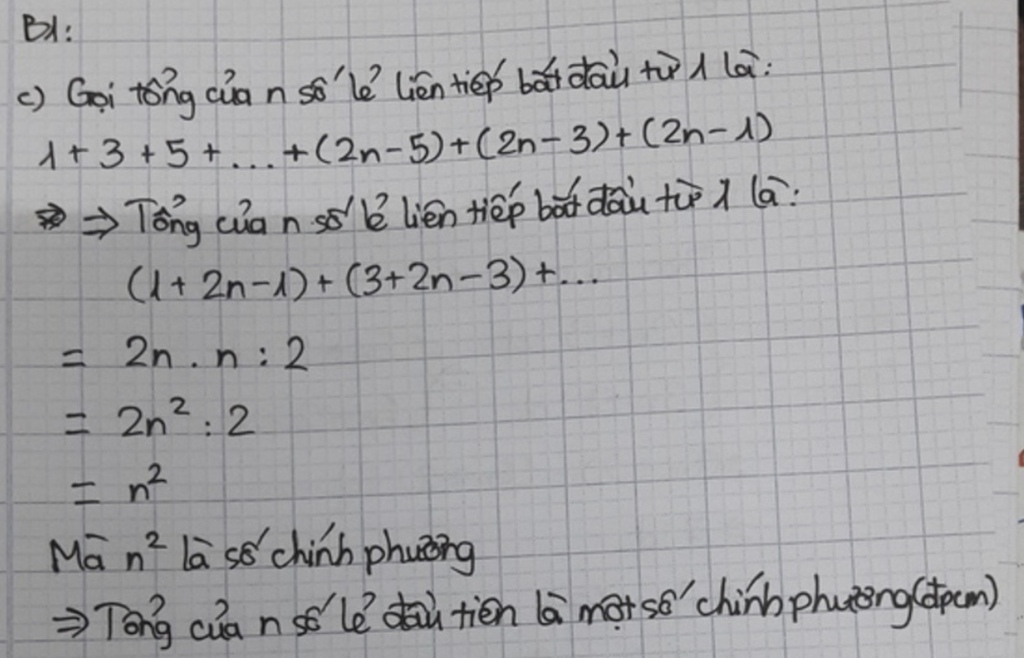 B1:
c) Gọi tổng của n số lẻ liên tiếp bắt đầu từ 1 là:
1 + 3 + 5 + ... + (2n - 5) + (2n - 3) + (2n - 1)
⇒ Tổng của n số lẻ liên tiếp bắt đầu từ 1 là:
(1 + 2n - 1) + (3 + 2n - 3) + ...
= 2n . n : 2
= 2n² : 2
= n²
Mà n² là số chính phương
⇒ Tổng của n số lẻ đầu tiên là một số chính phương (đpcm)